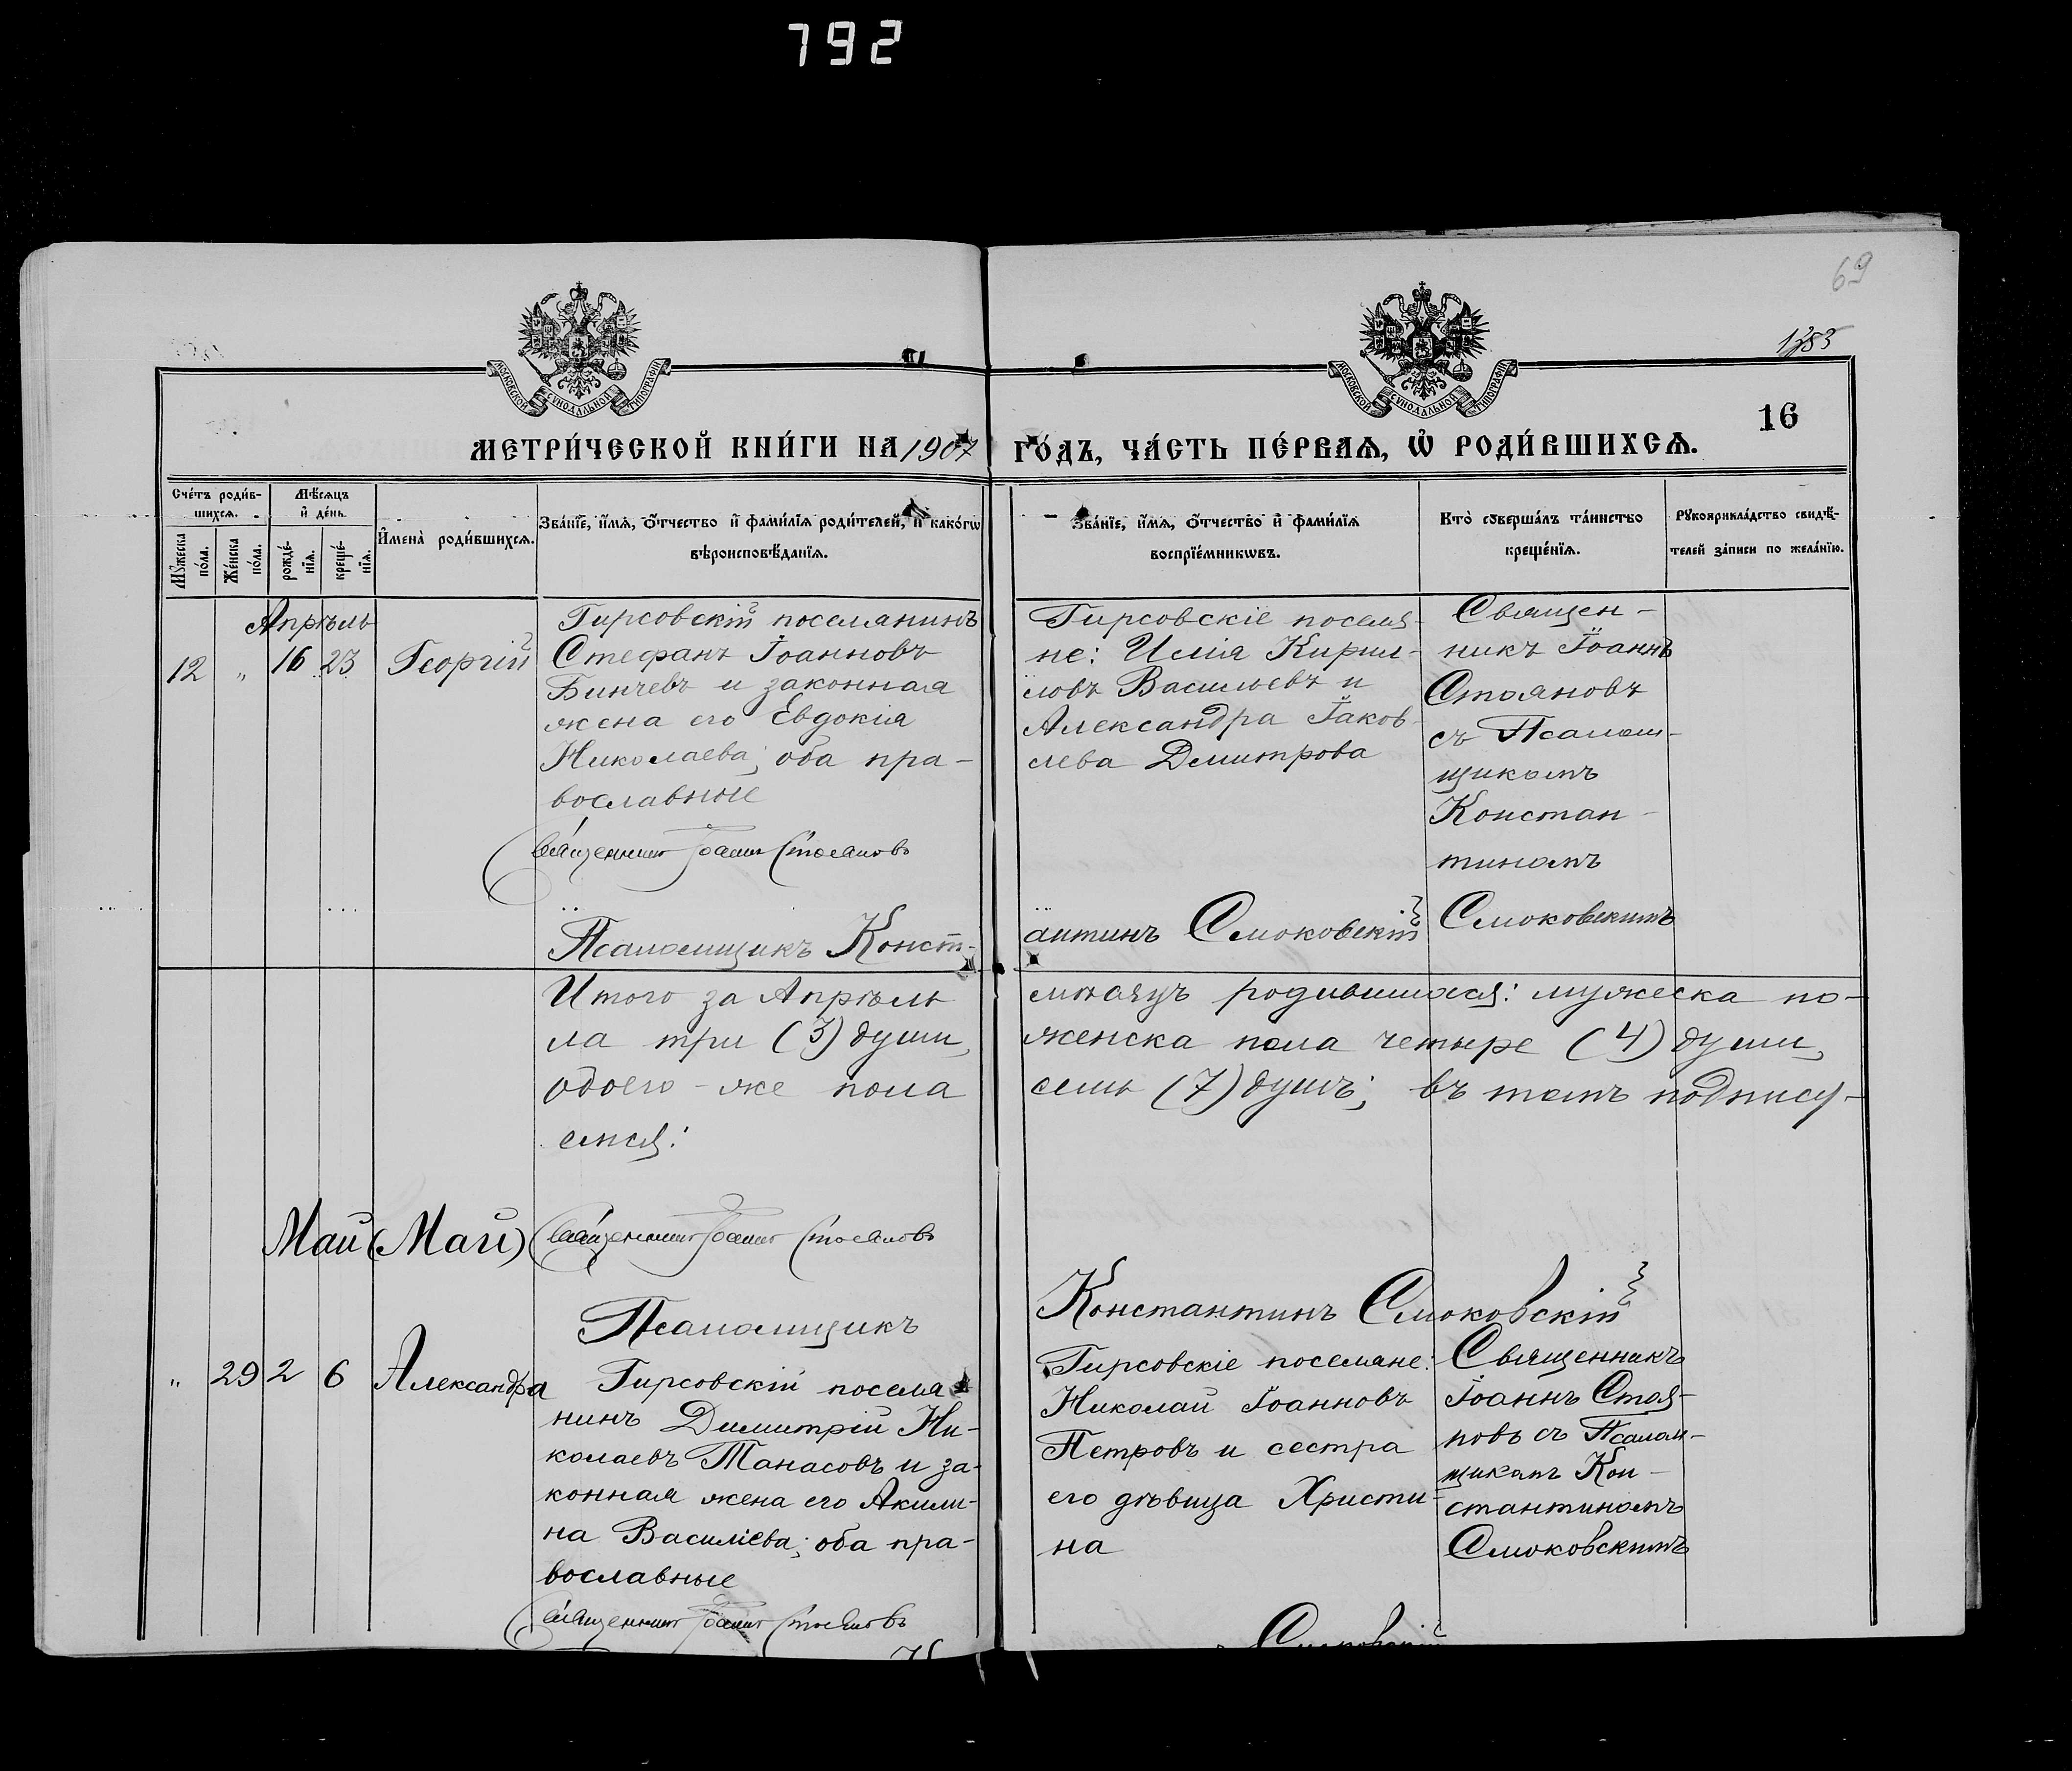 792
69
1383
МОСКОВСКОЙ СѴНОДАЛЬНОЙ ТИПОГРАФІИ
МОСКОВСКОЙ СѴНОДАЛЬНОЙ ТИПОГРАФІИ
16
МЕТРИ́ЧЕСКОЙ КНИ́ГИ НА 1907 ГО́ДЪ, ЧА́СТЬ ПЕ́РВАѦ, Ѡ РОДИ́ВШИХСѦ.
Счéтъ роди́в-
шихсѧ.
Мѣ́сѧцъ
и де́нь.
Мꙋ́жеска
по́ла.
Же́нска
по́ла.
рожде́-
нїѧ.
креще́-
нїѧ.
Имена̀ роди́вшихсѧ.
Зва́нїе, и́мѧ, ѻ́тчество и фами́лїѧ роди́телей, и како́гѡ
вѣроисповѣ́данїѧ.
Зва́нїе, и́мѧ, ѻ́тчество и фами́лїѧ
воспрїе́мникѡвъ.
Кто̀ соверша́лъ та́инство
креще́нїѧ.
Рꙋкоприкла́дство свидѣ́-
телей за́писи по жела́нїю.
Апрѣль
12 „ 16 23 Георгій
Гирсовскій поселянинъ
Стефанъ Іоанновъ
Бинчевъ и законная
жена его Евдокія
Николаева; оба пра-
вославные
Священникъ Іоаннъ Стояновъ
Гирсовскіе поселя-
не: Илія Кирил-
ловъ Васильевъ и
Александра Іаков-
лева Димитрова
Священ-
никъ Іоаннъ
Стояновъ
съ Псалом-
щикомъ
Констан-
тиномъ
Смоковскимъ
Псаломщикъ Конст-
антинъ Смоковскій
Итого за Апрѣль мѣсяцъ родившихся: мужеска по-
ла три (3) души, женска пола четыре (4) души,
обоего-же пола семь (7) душъ; въ томъ подпису-
емся:
Май (Май) Священникъ Іоаннъ Стояновъ
Псаломщикъ Константинъ Смоковскій
„ 29 2 6 Александра
Гирсовскій поселя
нинъ Димитрій Ни-
колаевъ Танасовъ и за-
конная жена его Акили-
на Василіева; оба пра-
вославные
Священникъ Іоаннъ Стояновъ
Гирсовскіе поселяне:
Николай Іоанновъ
Петровъ и сестра
его дѣвица Христи-
на
Священникъ
Іоаннъ Стоя-
новъ съ Псалом-
щикомъ Кон-
стантиномъ
Смоковскимъ
Смоковскій